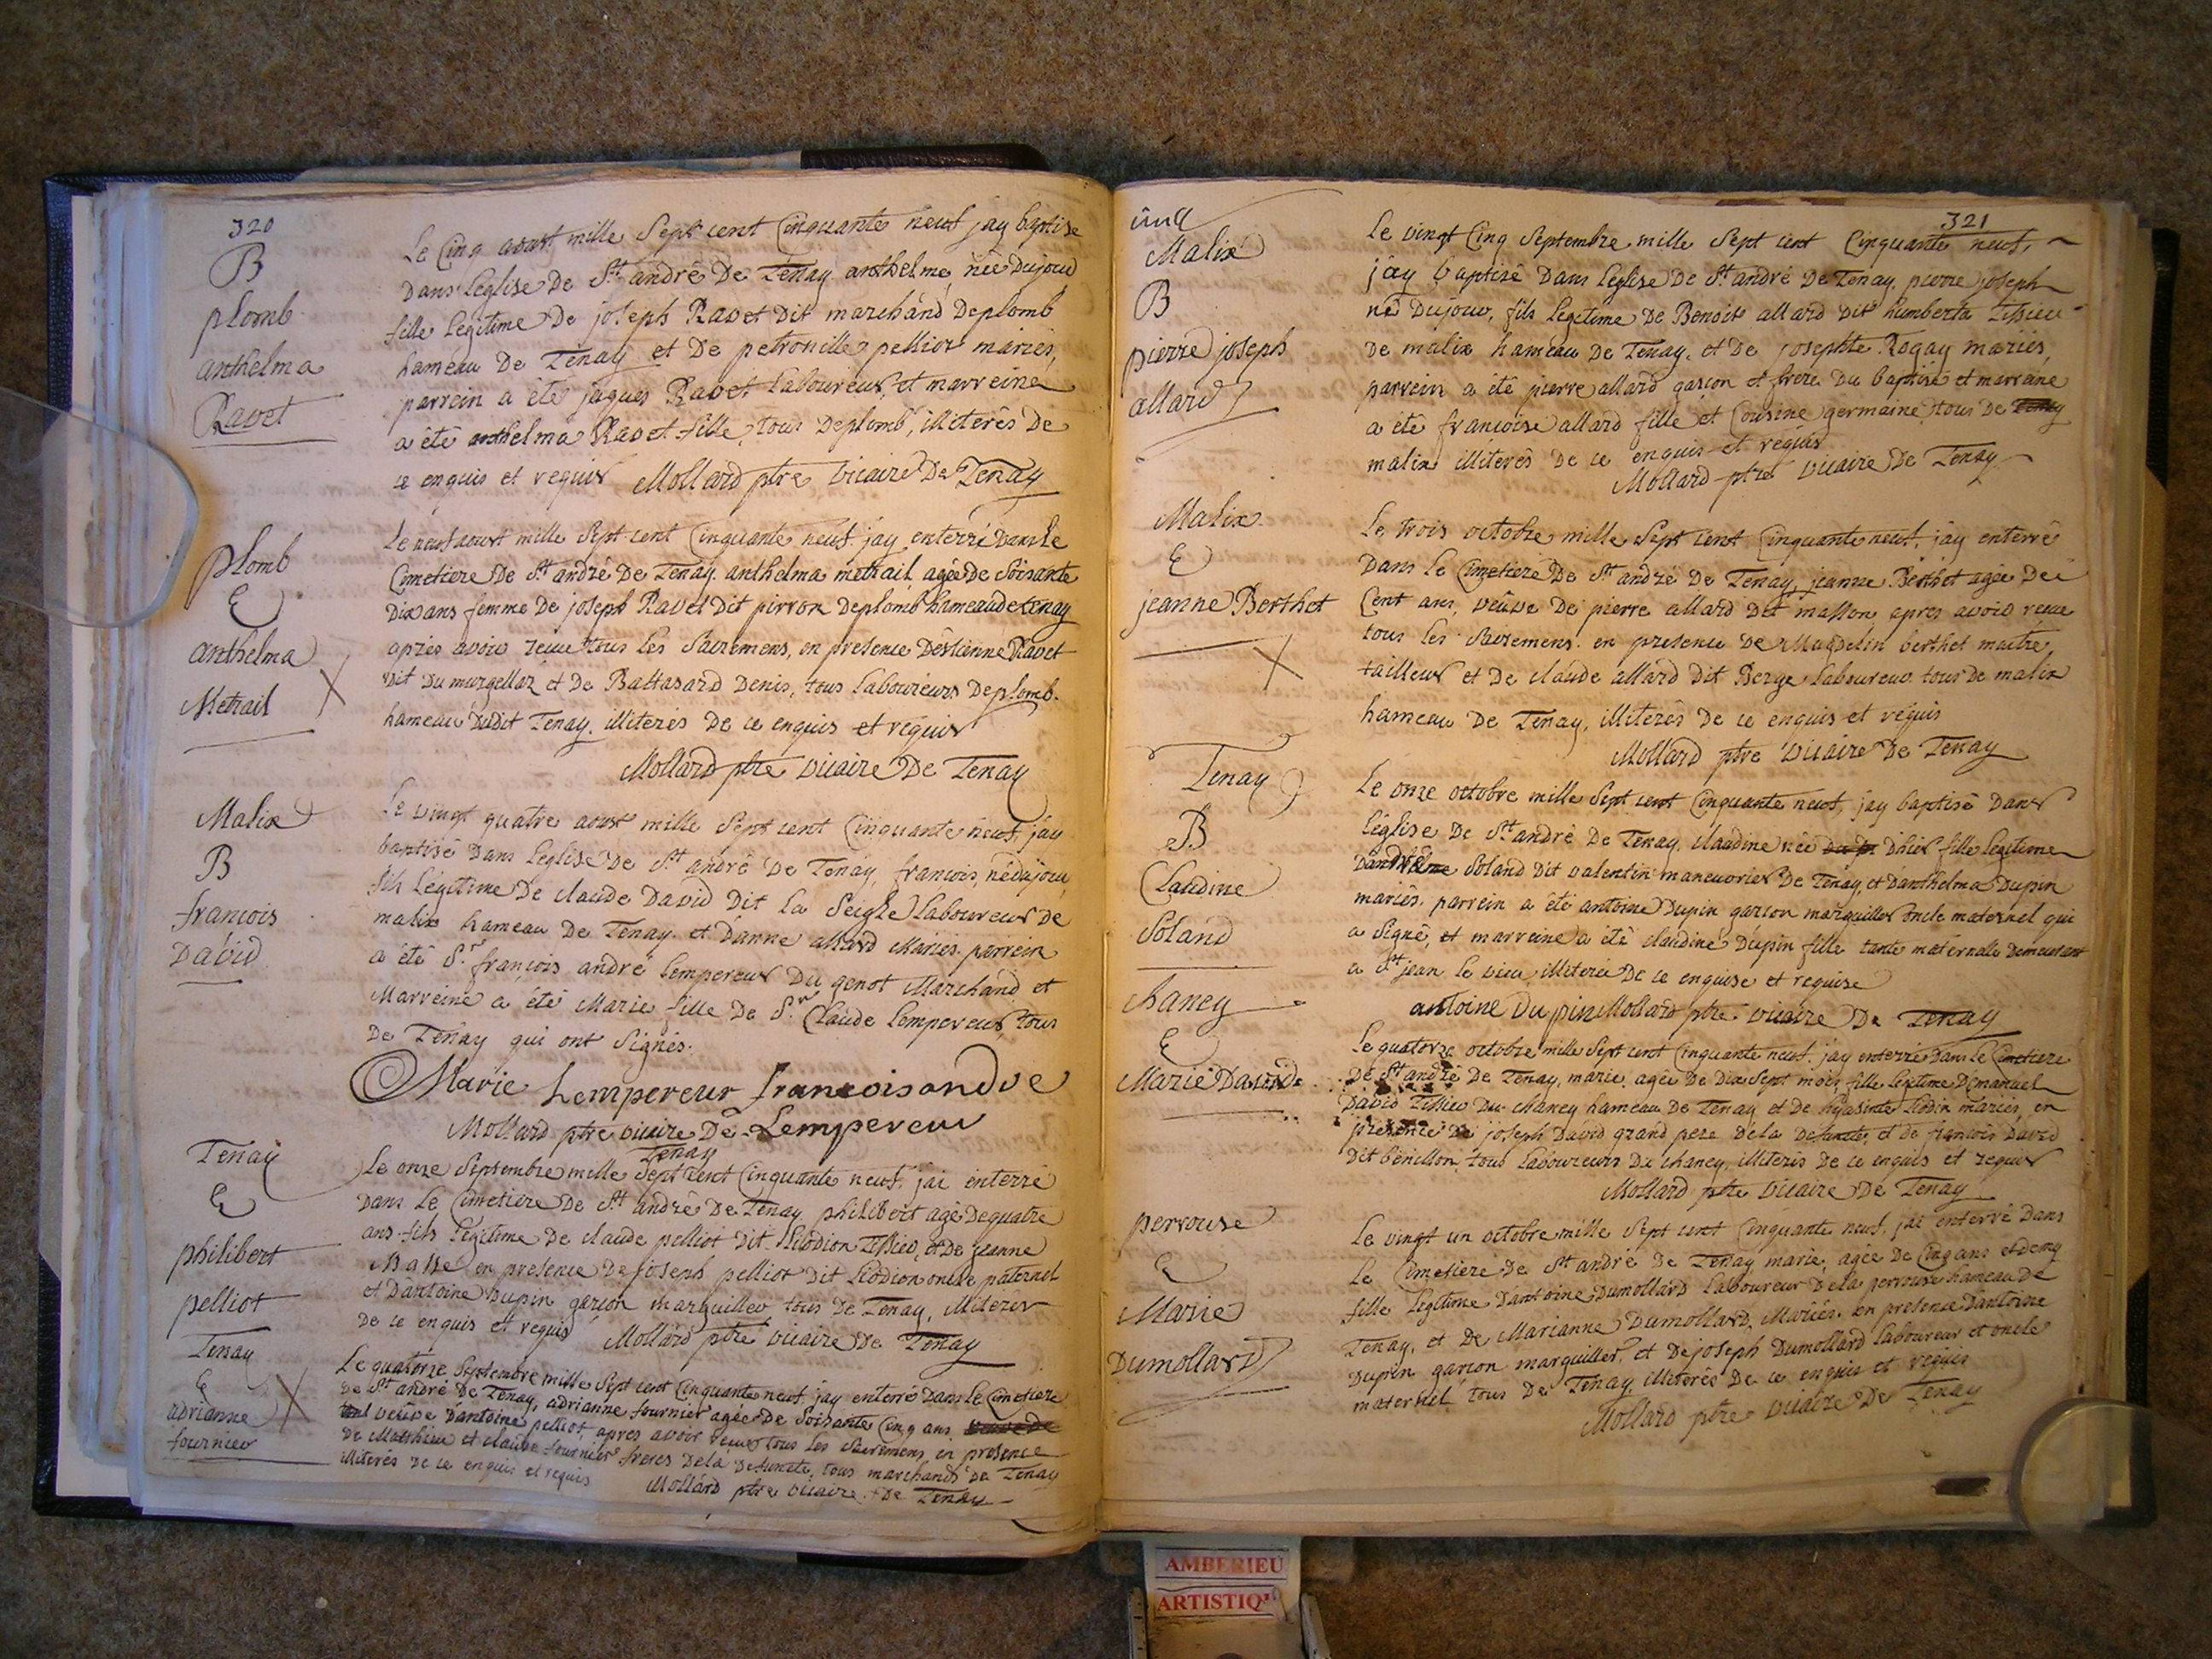 320
B
plomb
anthelma
Ravet
Le Cinq aoust mille Sept cent Cinquante neuf jay baptisé
Dans Leglise De St andré De Tenay anthelme née Dujour
fille Legitime De joseph Ravet Dit marchand Deplomb
hameau De Tenay et De petronille pelliot mariés,
parrein a été jaques Ravet Laboureur, et marreine
a été anthelma Ravet fille, tous Deplomb, illiterés De
ce enquis et requis Mollard ptre vicaire De Tenay
plomb
E
anthelma
Metrail
Le neuf aoust mille Sept cent Cinquante neuf jay enterré Dans Le
Cimetiere De St andré De Tenay anthelma metrail agée de Soisante
Dix ans femme De joseph Ravet Dit pirron Deplomb hameau de tenay
après avoir reçue tous Les Sacremens, en presence Destienne Ravet
Dit Du murgellar et De Baltasard Denis, tous Laboureurs Deplomb.
hameau Dudit Tenay. illiterés De ce enquis et requis
Mollard ptre vicaire De Tenay
Malix
B
francois
David
Le vingt quatre aoust mille Sept cent Cinquante neuf jay
baptisé Dans Leglise De St andré De Tenay, francois, né dujour,
fils Légitime De claude David Dit la Seigle Laboureur De
malix hameau De Tenay et Danne allard Mariés. parrein
a été Sr. françois andré Lempereur Du genot Marchand et
Marreine a été Marie fille De Sr. Claude Lempereur, tous
De Tenay qui ont Signés.
Marie Lempereur francois andre
Mollard ptre vicaire De Lempereur
Tenay
Tenay
E
philibert
pelliot
Le onze Septembre mille Sept cent Cinquante neuf jai enterré
Dans Le Cimetiere De St andré De Tenay philibert agé Dequatre
ans fils Légitime De claude pelliot Dit Clodion Tissieu, et De jeanne
en presence De joseph pelliot Dit Clodion oncle paternel
et Dantoine Dupin garçon marguiller tous De Tenay, illiterés
De ce enquis et requis Mollard ptre vicaire De Tenay
Tenay
E
adrianne
fournier
Le quatorze Septembre mille Sept cent Cinquante neuf jay enterré Dans Le Cimetiere
De St andré De Tenay, adrianne fournier agée De Soisante Cinq ans
veuve Dantoine pelliot, apres avoir reçue tous Les Sacremens, en presence
De Matthieu et claude fournier freres Dela Defuncte, tous marchands De Tenay
illiterés De ce enquis et requis Mollard ptre vicaire De Tenay
321
Malix
B
pierre joseph
allard
Le vingt Cinq Septembre mille Sept cent Cinquante neuf,
jay baptisé Dans Leglise De St andré De Tenay, pierre joseph
né Dujour, fils Legitime De Benoit allard Dit humberta Tissieu
De malix hameau De Tenay, et De josephte Rogay mariés,
parrein a été pierre allard garçon et frere Du baptisé et marreine
a été francoise allard fille et Cousine germaine, tous De Tenay
malix illiterés De ce enquis et requis
Mollard ptre vicaire De Tenay
Malix
E
jeanne Berthet
Le trois octobre mille Sept cent Cinquante neuf, jay enterré
Dans Le Cimetiere De St andré De Tenay, jeanne Berthet agée De
Cent ans, veuve De pierre allard Dit masson apres avoir reçue
tous Les Sacremens. en presence De Magdelin berthet maitre,
tailleur et De claude allard Dit Berge Laboureur tous De malix
hameau De Tenay, illiterés De ce enquis et requis
Mollard ptre vicaire De Tenay
Tenay
B
Claudine
Soland
Le onze octobre mille Sept cent Cinquante neuf, jay baptisé Dans
Léglise De St andré De Tenay, claudine née Dhier fille Legitime
Soland Dit valentin maneuvrier De Tenay, et Danthelma Dupin
mariés. parrein a été antoine Dupin garçon marguiller oncle maternel qui
a Signé, et marreine a été claudine Dupin fille tante maternelle Demeurant
a St jean le vieu illiterée De ce enquise et requise
antoine Du pin Mollard ptre vicaire De Tenay
chaney
E
Marie David
Le quatorze octobre mille Sept cent Cinquante neuf. jay enterré Dans Le Cimetiere
De St andré De Tenay, marie, agée De Dix Sept mois, fille Legitime Demanuel
David Tissieu Du chaney hameau De Tenay et De hyasinte Clodin mariés, en
presence De joseph David grand pere Dela Defuncte, et De francois David
Dit benillon tous Laboureurs Du chaney, illiterés De ce enquis et requis
Mollard ptre vicaire De Tenay
perrouse
E
Marie
Dumollard
Le vingt un octobre mille Sept cent Cinquante neuf. jai enterré Dans
Le Cimetiere De St andré De Tenay marie, agée De Cinq ans et demy
fille Legitime Dantoine Dumollard Laboureur Dela perrouse hameau De
Tenay, et De Marianne Dumollard, Mariés. en presence Dantoine
Dupin garcon marguiller, et De joseph Dumollard Laboureur et oncle
maternel tous De Tenay, illiterés De ce enquis et requis
Mollard ptre vicaire De Tenay
AMBERIEU
ARTISTIQ